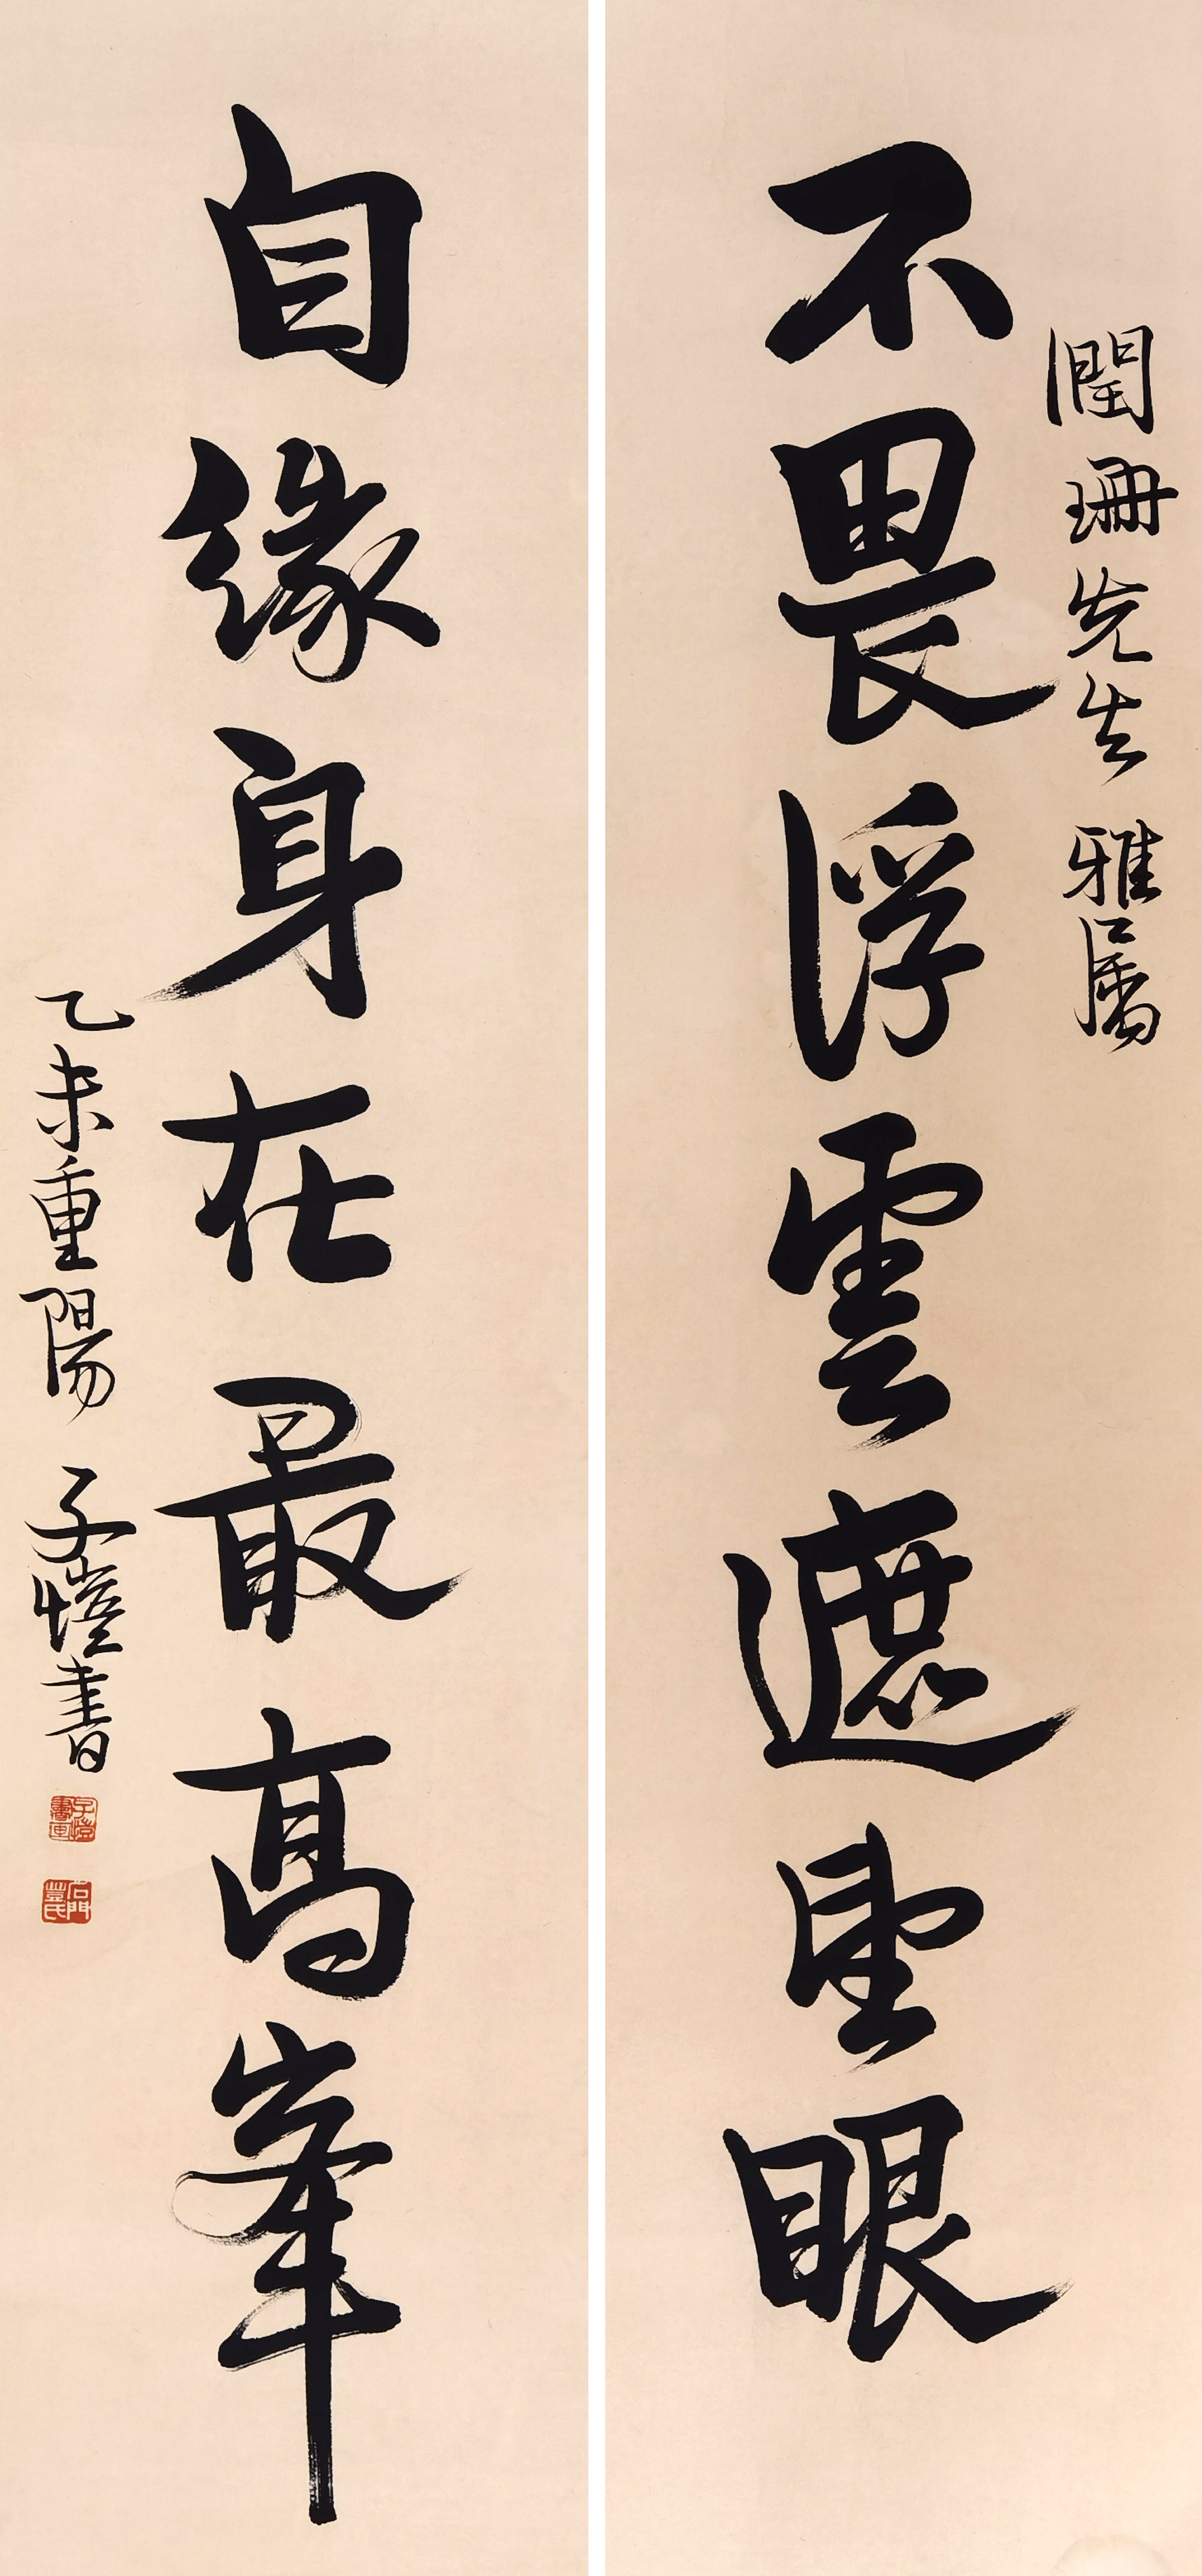 潤珊先生 雅屬
不畏浮雲遮望眼
自緣身在最高峯
乙未重陽 子愷書
子愷書畫
石門豐氏